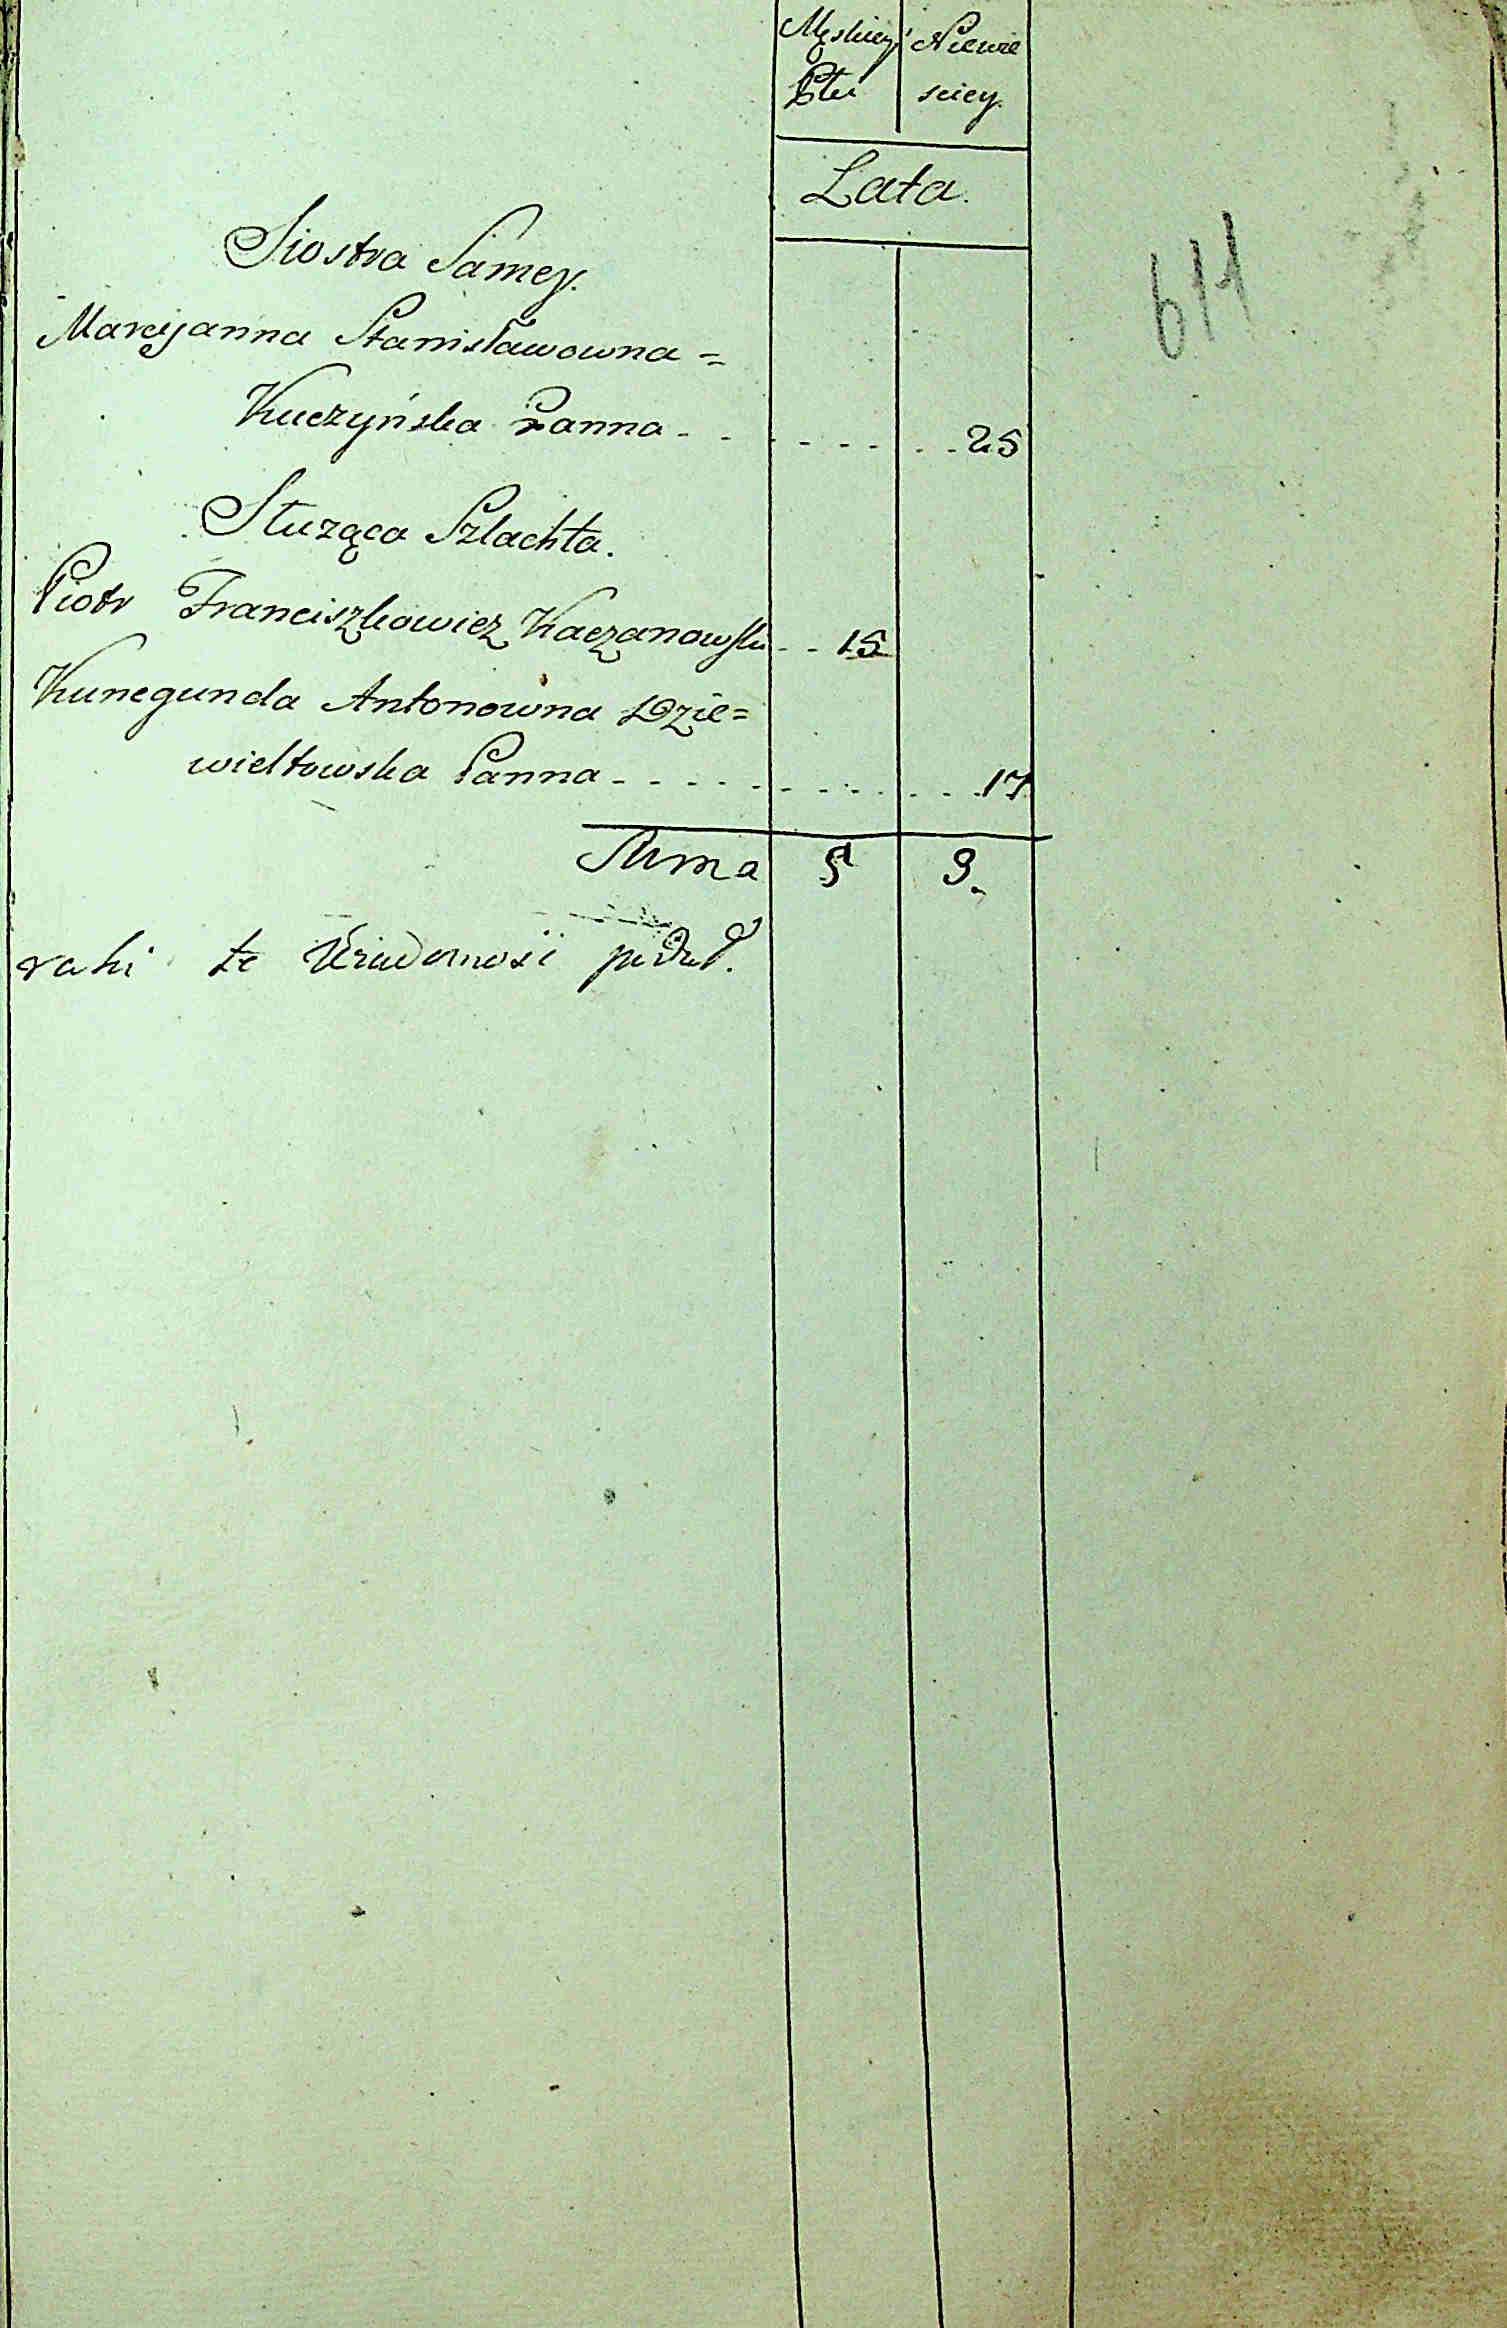 Męskiey Niewie
Płci sciey.
Lata.
611
Siostra Samey.
Marcyanna Stanisławowna =
Kuczyńska Panna - - - - - - - - - 25
Służąca Szlachta.
Piotr Franciszkowicz Kaczanowski - - 15
Kunegunda Antonowna Dzie=
wiełtowska Panna - - - - - - - - - - 17
Suma 5 9.
raki te Wiadomość podał.